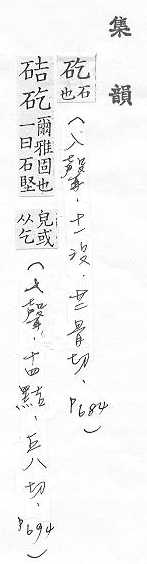 集韻
矻石也(入聲.十一沒.苦骨切.P684)
硈矻爾雅固也一曰石堅皃或从乞(入聲.十四黠.丘八切.P694)